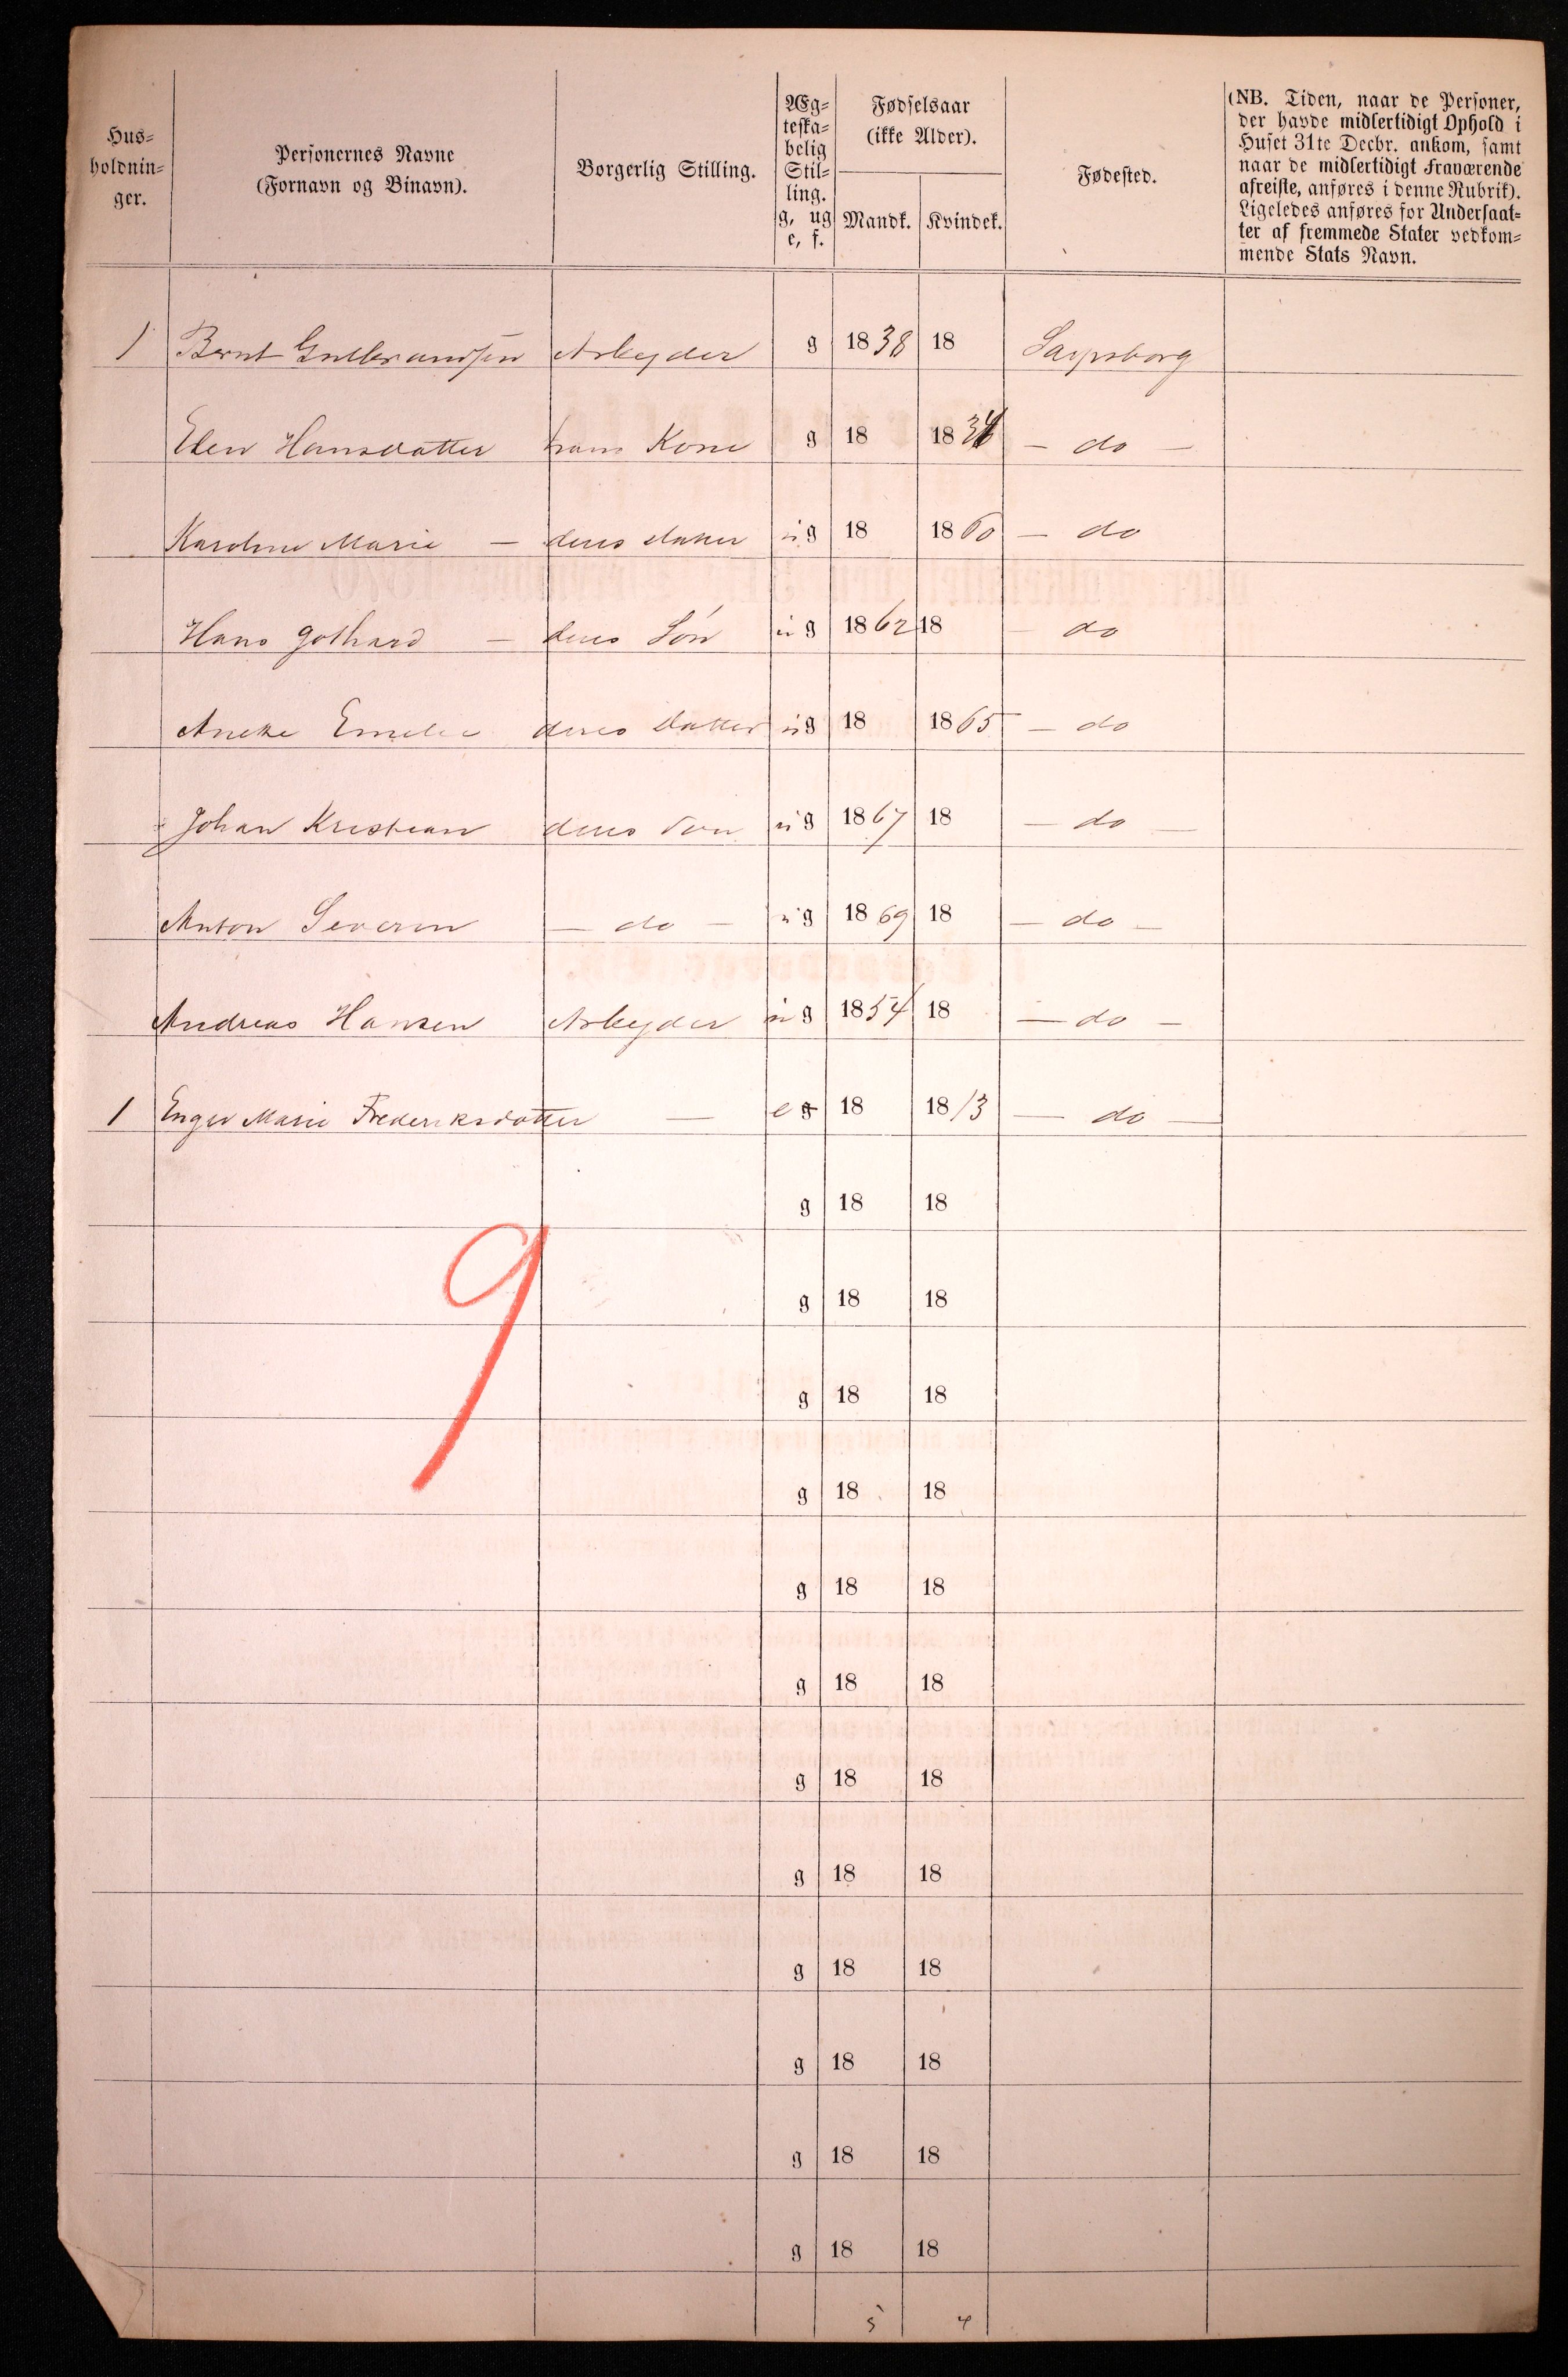 Hus-
holdnin-
ger.
Personernes Navne
(Fornavn og Binavn).
Borgerlig Stilling.
Æg-
teska-
belig
Stil-
ling.
g, ug
e, f.
Fødselsaar
(ikke Alder).
Mandk. Kvindek.
Fødested.
(NB. Tiden, naar de Personer,
der havde midlertidigt Ophold i
Huset 31te Decbr. ankom, samt
naar de midlertidigt Fraværende
afreiste, anføres i denne Rubrik).
Ligeledes anføres for Undersaat-
ter af fremmede Stater vedkom-
mende Stats Navn.
1 Bernt Gulbrandsen Arbeyder g 1838 18 Sarpsborg
Elen Hansdatter hans Kone g 18 18 — do —
Karoline Marie — deres datter ug 18 1860 — do
Hans Gothard — deres Søn ug 1862 18 — do
Aneke Emelie deres datter ug 18 1865 — do
Johan Kristian deres Søn ug 1867 18 — do —
Anton Severin — do — ug 1869 18 — do —
Andreas Hansen Arbeyder ug 1854 18 — do —
1 Enger Marie Frederiksdatter — e g 18 1813 — do —
g 18 18
9
g 18 18
g 18 18
g 18 18
g 18 18
g 18 18
g 18 18
g 18 18
g 18 18
g 18 18
g 18 18
g 18 18
5 4